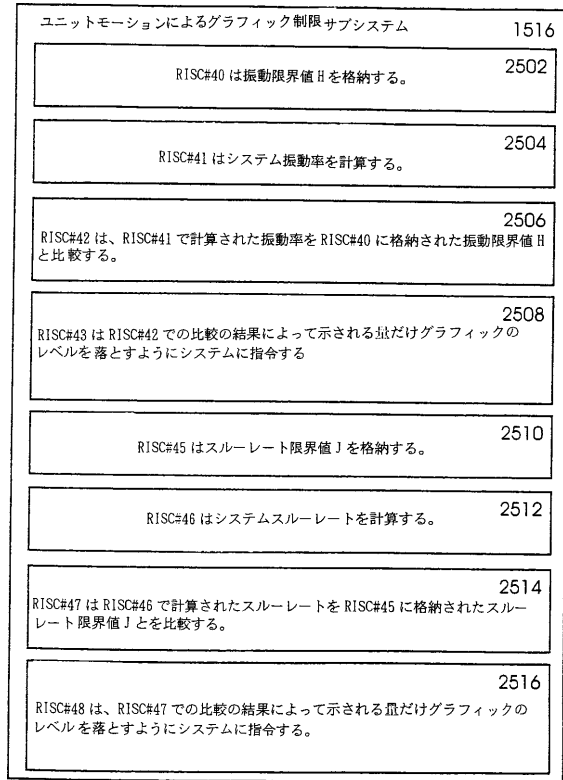 ユニットモーションによるグラフィック制限サブシステム 1516
2502
RISC#40 は振動限界値 H を格納する。
2504
RISC#41 はシステム振動率を計算する。
2506
RISC#42 は、RISC#41 で計算された振動率を RISC#40 に格納された振動限界値 H
と比較する。
2508
RISC#43 は RISC#42 での比較の結果によって示される量だけグラフィックの
レベルを落とすようにシステムに指令する
2510
RISC#45 はスルーレート限界値 J を格納する。
2512
RISC#46 はシステムスルーレートを計算する。
2514
RISC#47 は RISC#46 で計算されたスルーレートを RISC#45 に格納されたスルー
レート限界値 J とを比較する。
2516
RISC#48 は、RISC#47 での比較の結果によって示される量だけグラフィックの
レベルを落とすようにシステムに指令する。